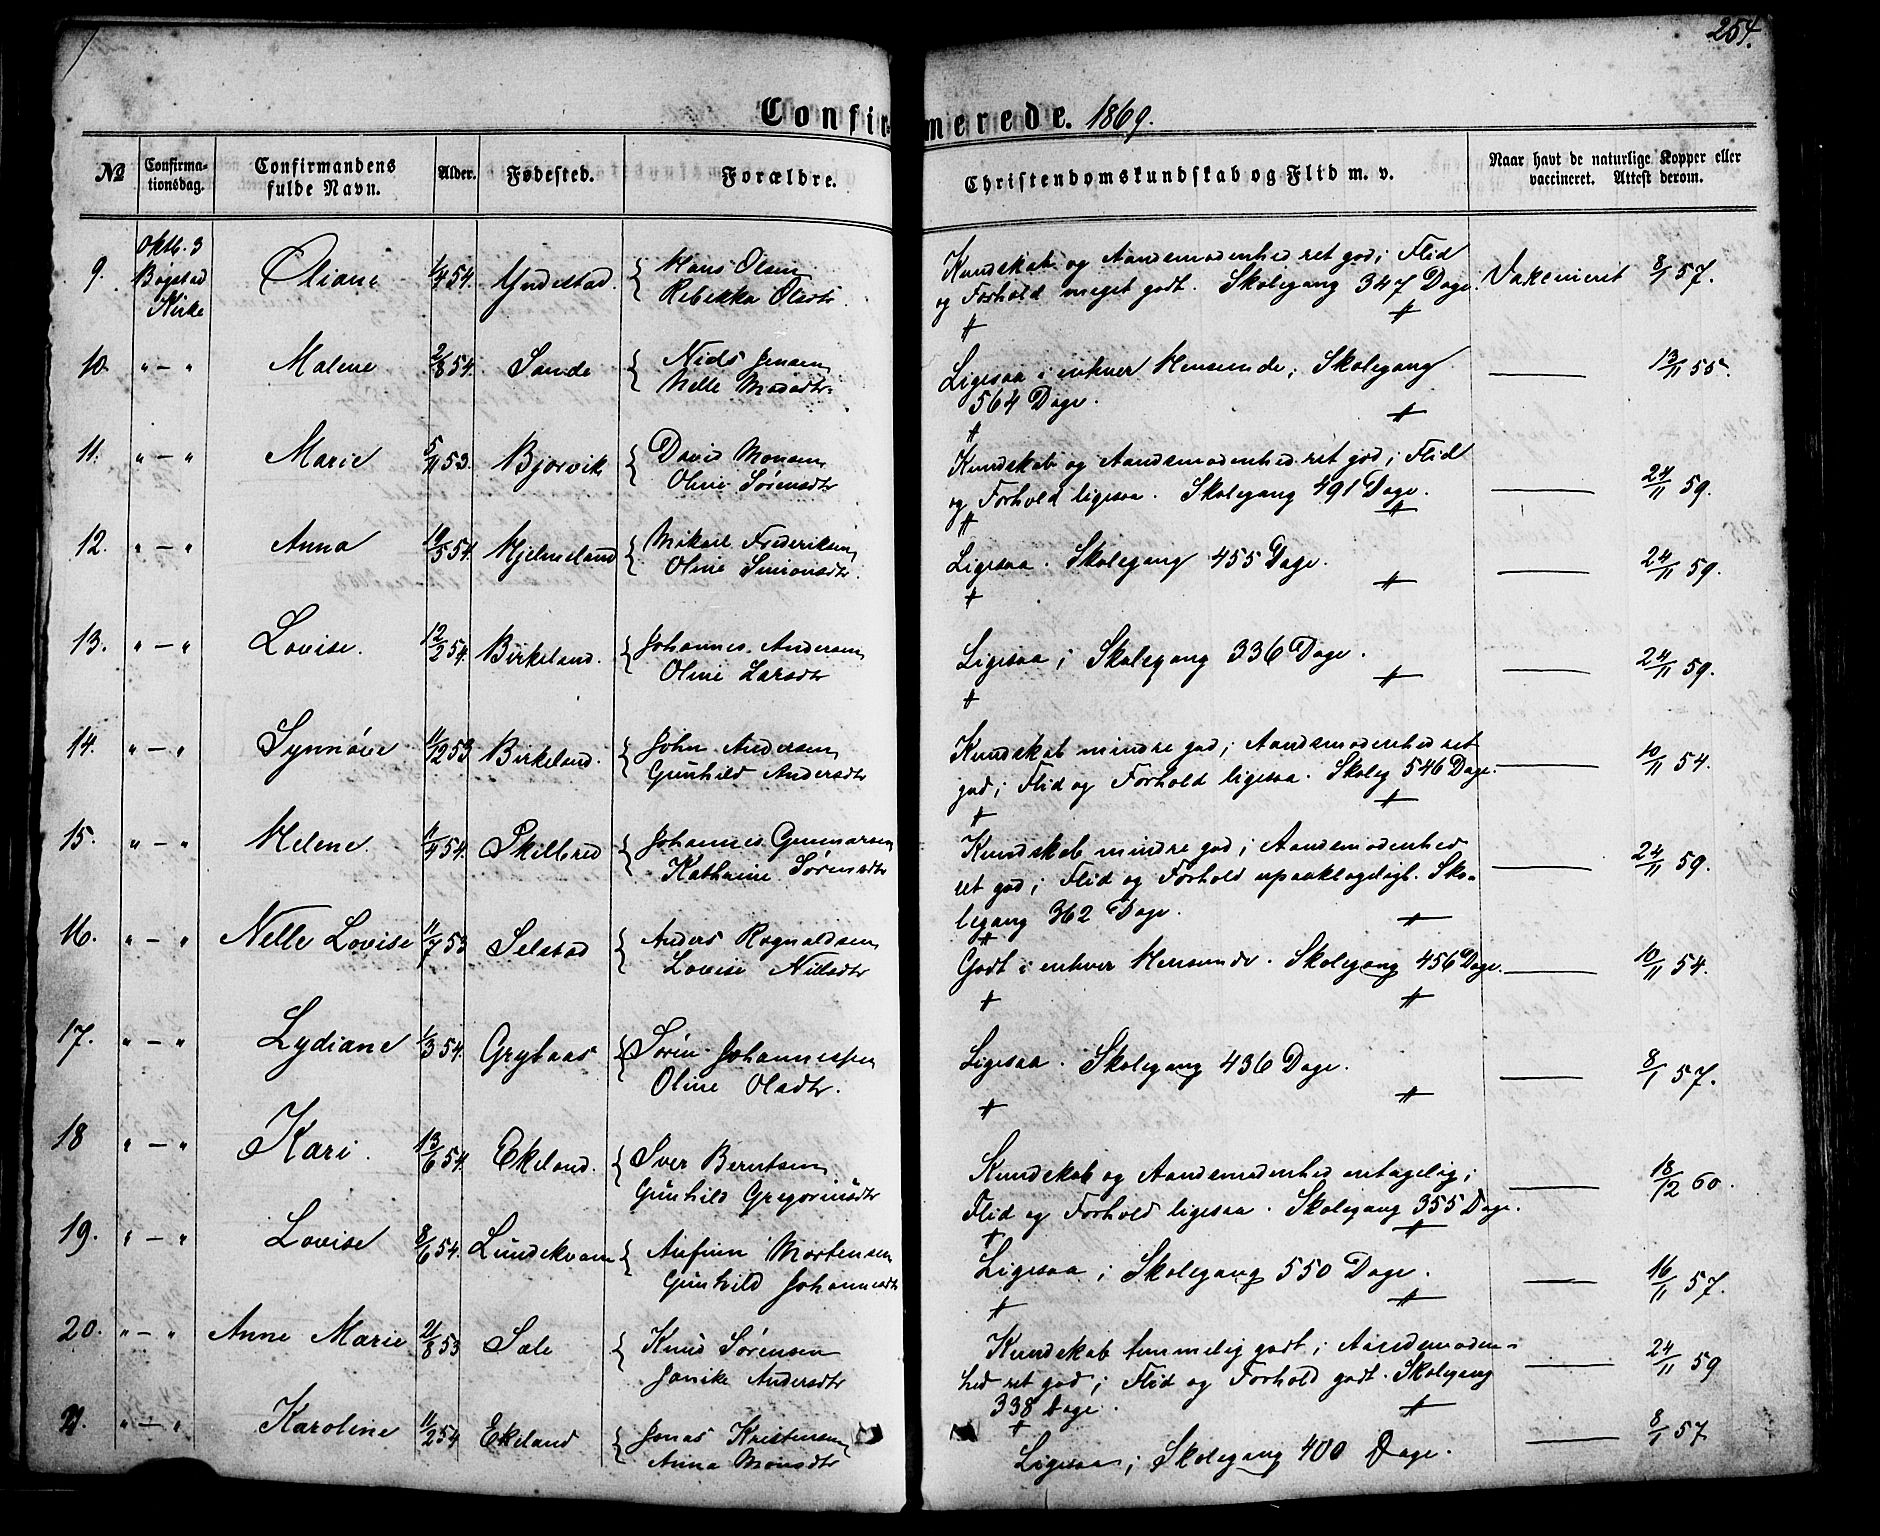 254.
Confirmerede. 1869.
№ Confirmationsdag. Confirmandens fulde Navn. Alder. Fødested. Forældre. Christendomskundskab og Flid m. v. Naar havt de naturlige Kopper eller vaccineret. Attest derom.
9. Oktb. 3 Bygstad Kirke Oliane 1/4 54. Yndestad { Hans Olsen
Rebekka Olsdtr. Kundskab og Aandsmodenhed ret god; Flid
og Forhold meget godt. Skolegang 347 Dage. Vakcineret 8/1 57.
10. " — " Malene 2/8 54. Sande { Niels Jensen
Nelle Madsdtr. Ligesaa i enhver Henseende; Skolegang
564 Dage. — 13/11 55.
11. " — " Marie 5/11 53. Bjørvik { David Monsen
Oline Sørensdtr Kundskab og Aandsmodenhed ret god; Flid
og Forhold ligesaa. Skolegang 491 Dage. — 24/11 59.
12. " — " Anna 19/5 54. Hjelmeland { Mikael Frederiksen
Oline Simonsdtr. Ligesaa. Skolegang 455 Dage. — 24/11 59.
13. " — " Lovise. 12/2 54. Birkeland. { Johannes Andersen
Oline Larsdtr Ligesaa; Skolegang 336 Dage. — 24/11 59.
14. " — " Synnøve 11/12 53 Birkeland. { John Andersen
Gunhild Andersdtr Kundskab mindre god; Aandsmodenhed ret
god; Flid og Forhold ligesaa. Skoleg 546 Dage. — 10/11 54.
15. " — " Helene 11/4 54. Skilbred { Johannes Gunnarsen
Kathrine Sørensdtr Kundskab mindre god; Aandsmodenhed
ret god; Flid og Forhold upaaklageligt. Sko-
legang 362 Dage. — 24/11 59.
16. " — " Nelle Lovise 11/7 53 Selstad { Anders Rognaldsen
Lovise Nilsdtr Godt i enhver Henseende. Skolegang 456 Dage. — 10/11 54.
17. " — " Lydiane 1/3 54. Grytaas { Søren Johannessen
Oline Olsdtr. Ligesaa. Skolegang 436 Dage. — 8/1 57.
18 " — " Kari. 13/6 54. Ekeland. { Iver Berntsen
Gunhild Gregoriusdtr Kundskab og Aandsmodenhed antagelig;
Flid og Forhold ligesaa. Skolegang 355 Dage. — 18/12 60.
19. " — " Lovise 8/6 54. Lundekvam { Anfinn Mortensen
Gunhild Johannesdtr Ligesaa; Skolegang 550 Dage. — 16/11 57.
20. " — " Anne Marie 21/8 53 Sæle { Knud Sørensen
Janike Andersdtr Kundskab temmelig godt; Aandsmoden-
hed ret god; Flid og Forhold godt. Skolegang
338 Dage. — 24/11 59
21. " — " Karoline 11/2 54 Ekeland { Jonas Kristensen
Anna Monsdtr Ligesaa; Skolegang 400 Dage. — 8/1 57